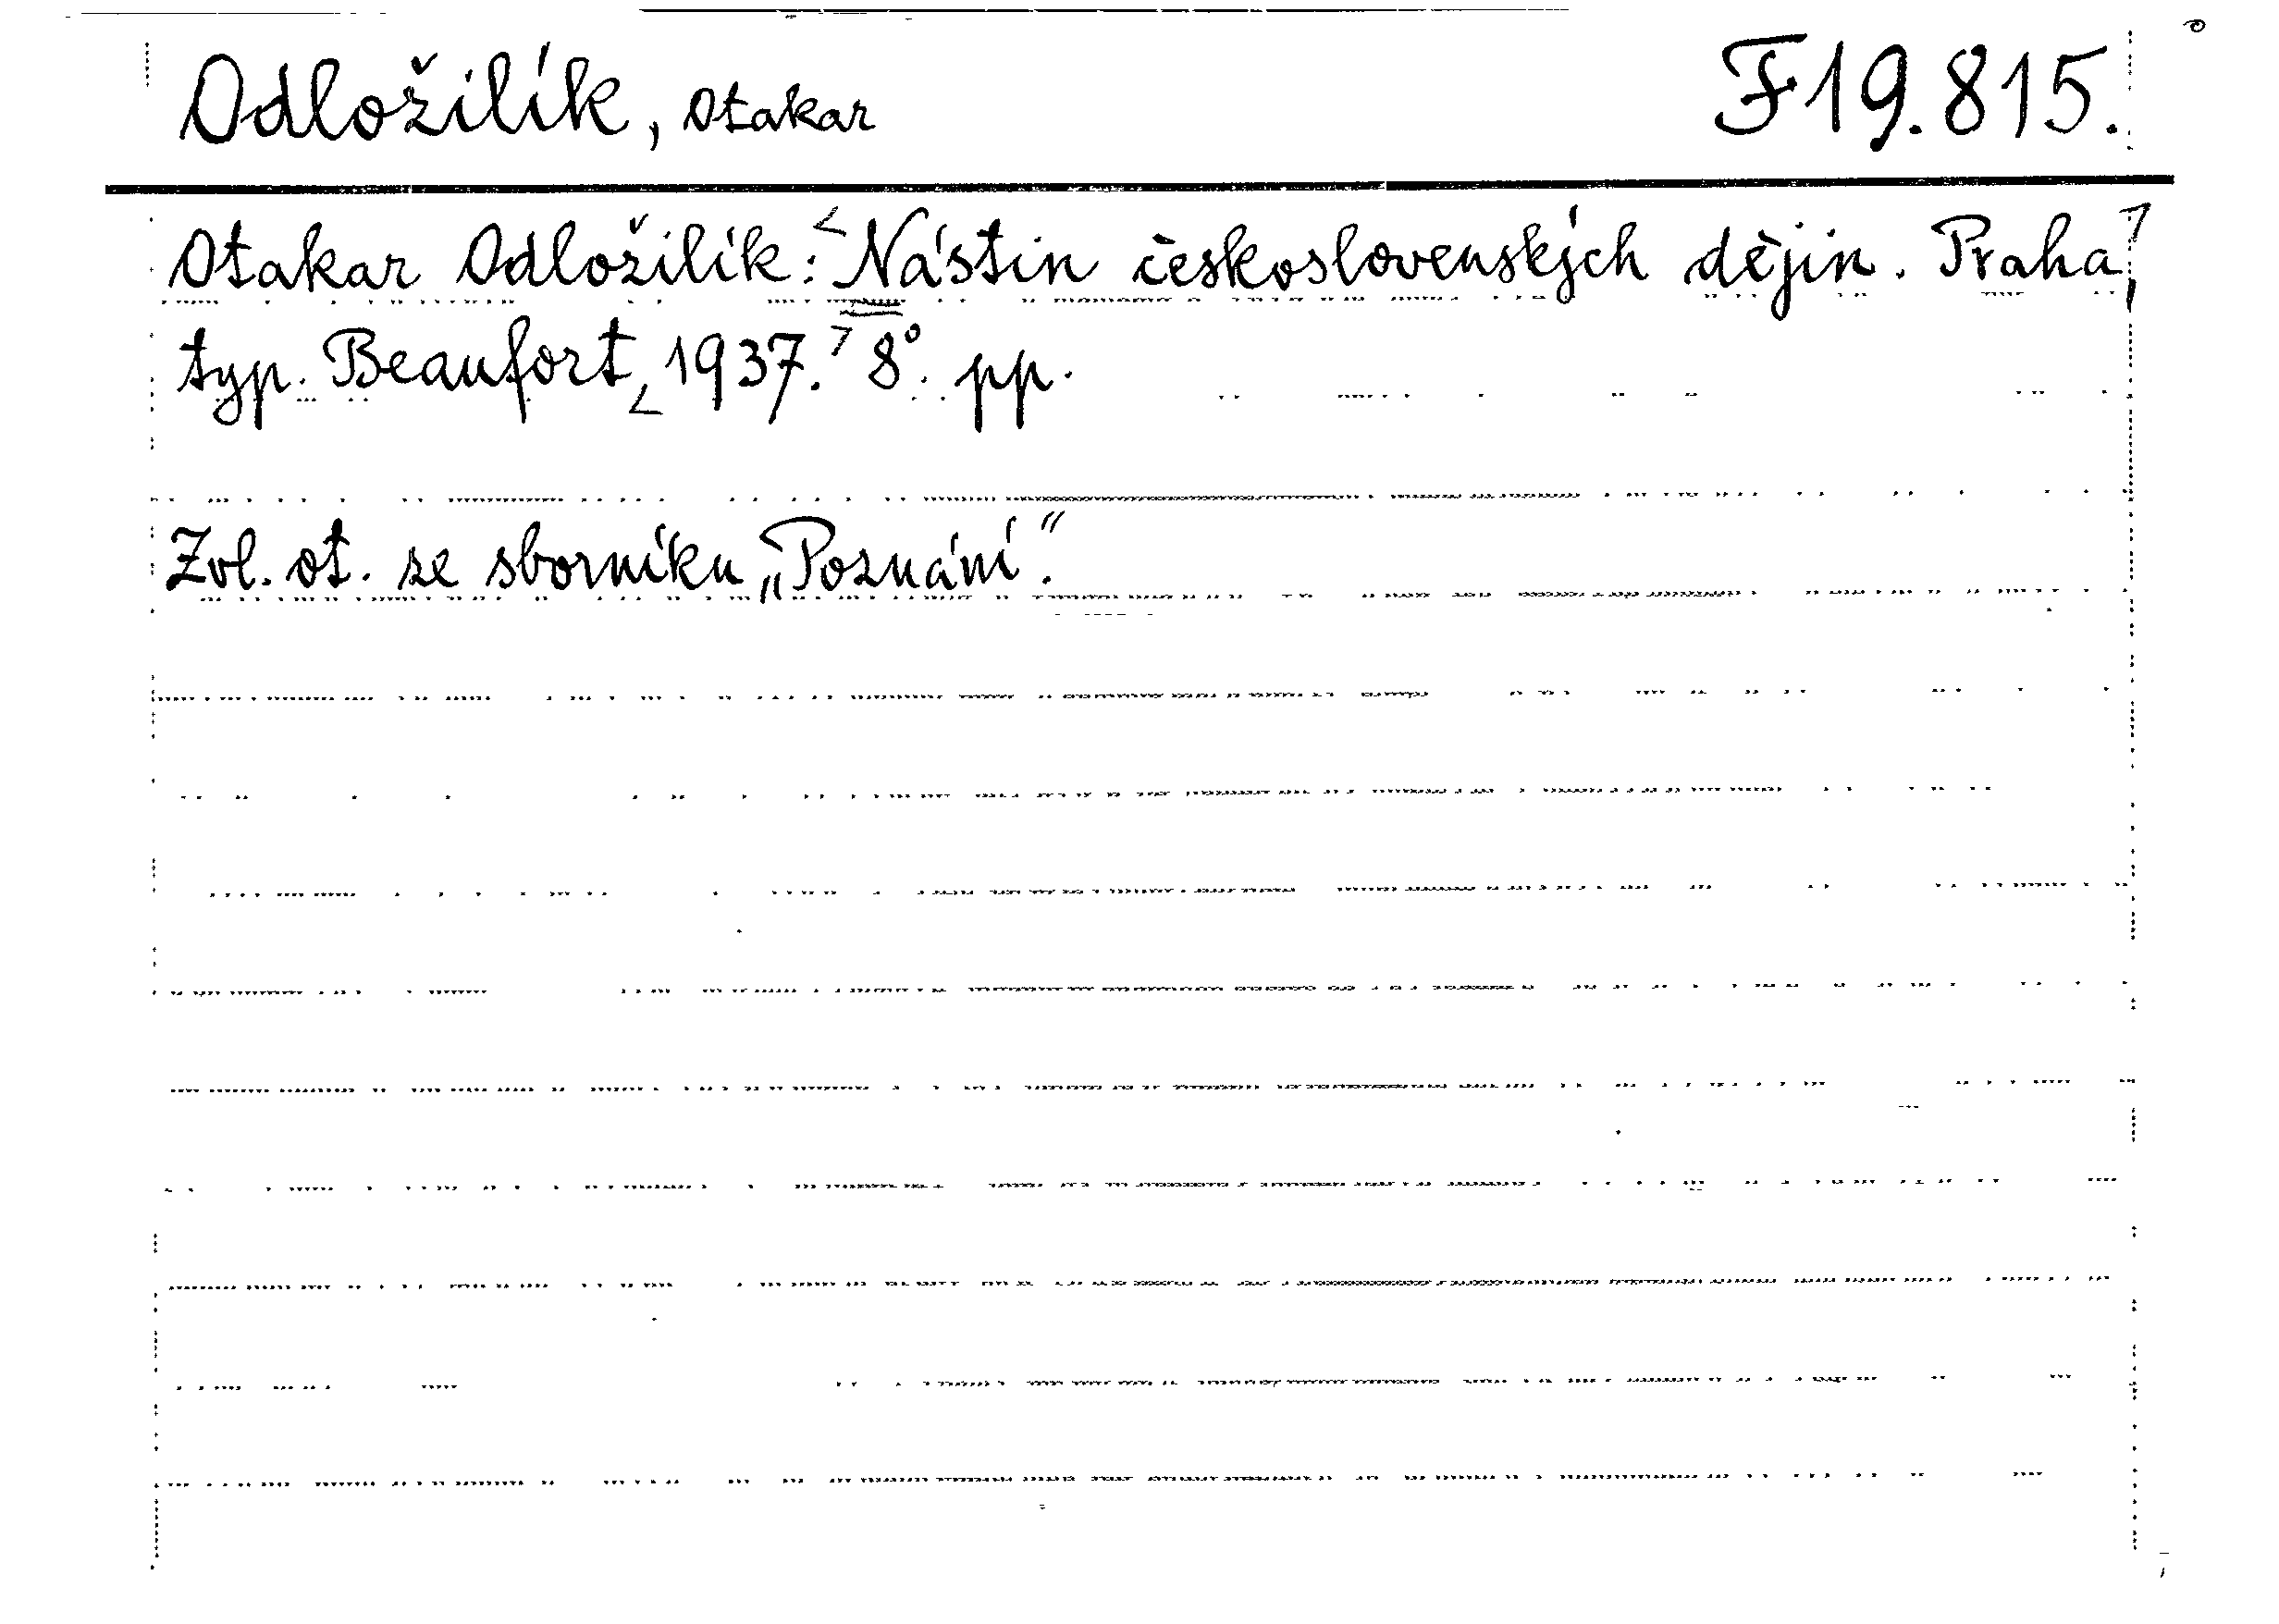 Odložilík, Otakar F 19.815.
Otakar Odložilík: <Nástin československých dějin. Praha,>
typ. Beaufort, <1937.> 8°. pp.
Zvl. ot. ze sborníku „Poznání“.